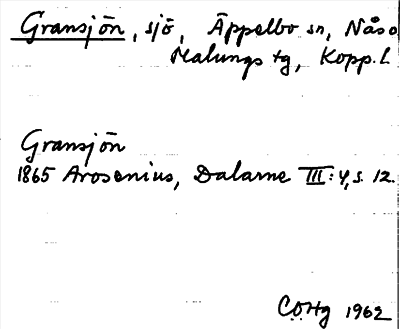 Gransjön, sjö, Äppelbo sn, Nås o
Malungs tg, Kopp. l.
Gransjön
1865 Arosenius, Dalarne III: 4, s. 12.
COHg 1962